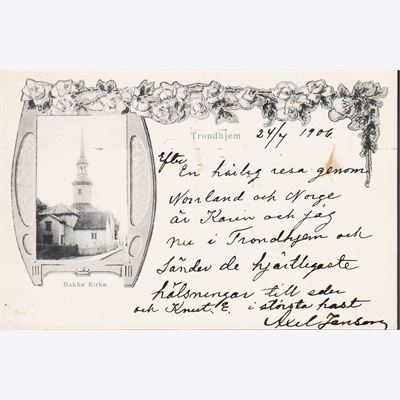 Trondhjem
24/7 1906.
Efter
En härlig resa genom
Norrland och Norge
är Karin och jag
nu i Trondhjem och
sänder de hjärtligaste
hälsningar till eder
och Knut. E. i största hast
Axel Janson
Bakke Kirke.